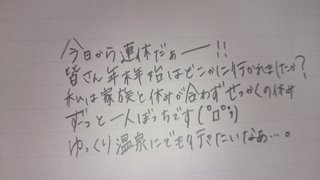 今日から連休だぁー!!
皆さん年末年始はどこかに行かれましたか?
私は家族と休みが合わずせっかくの休み
ずっと一人ぼっちです(ﾟﾛﾟ;)
ゆっくり温泉にでも行きたいなぁ…。